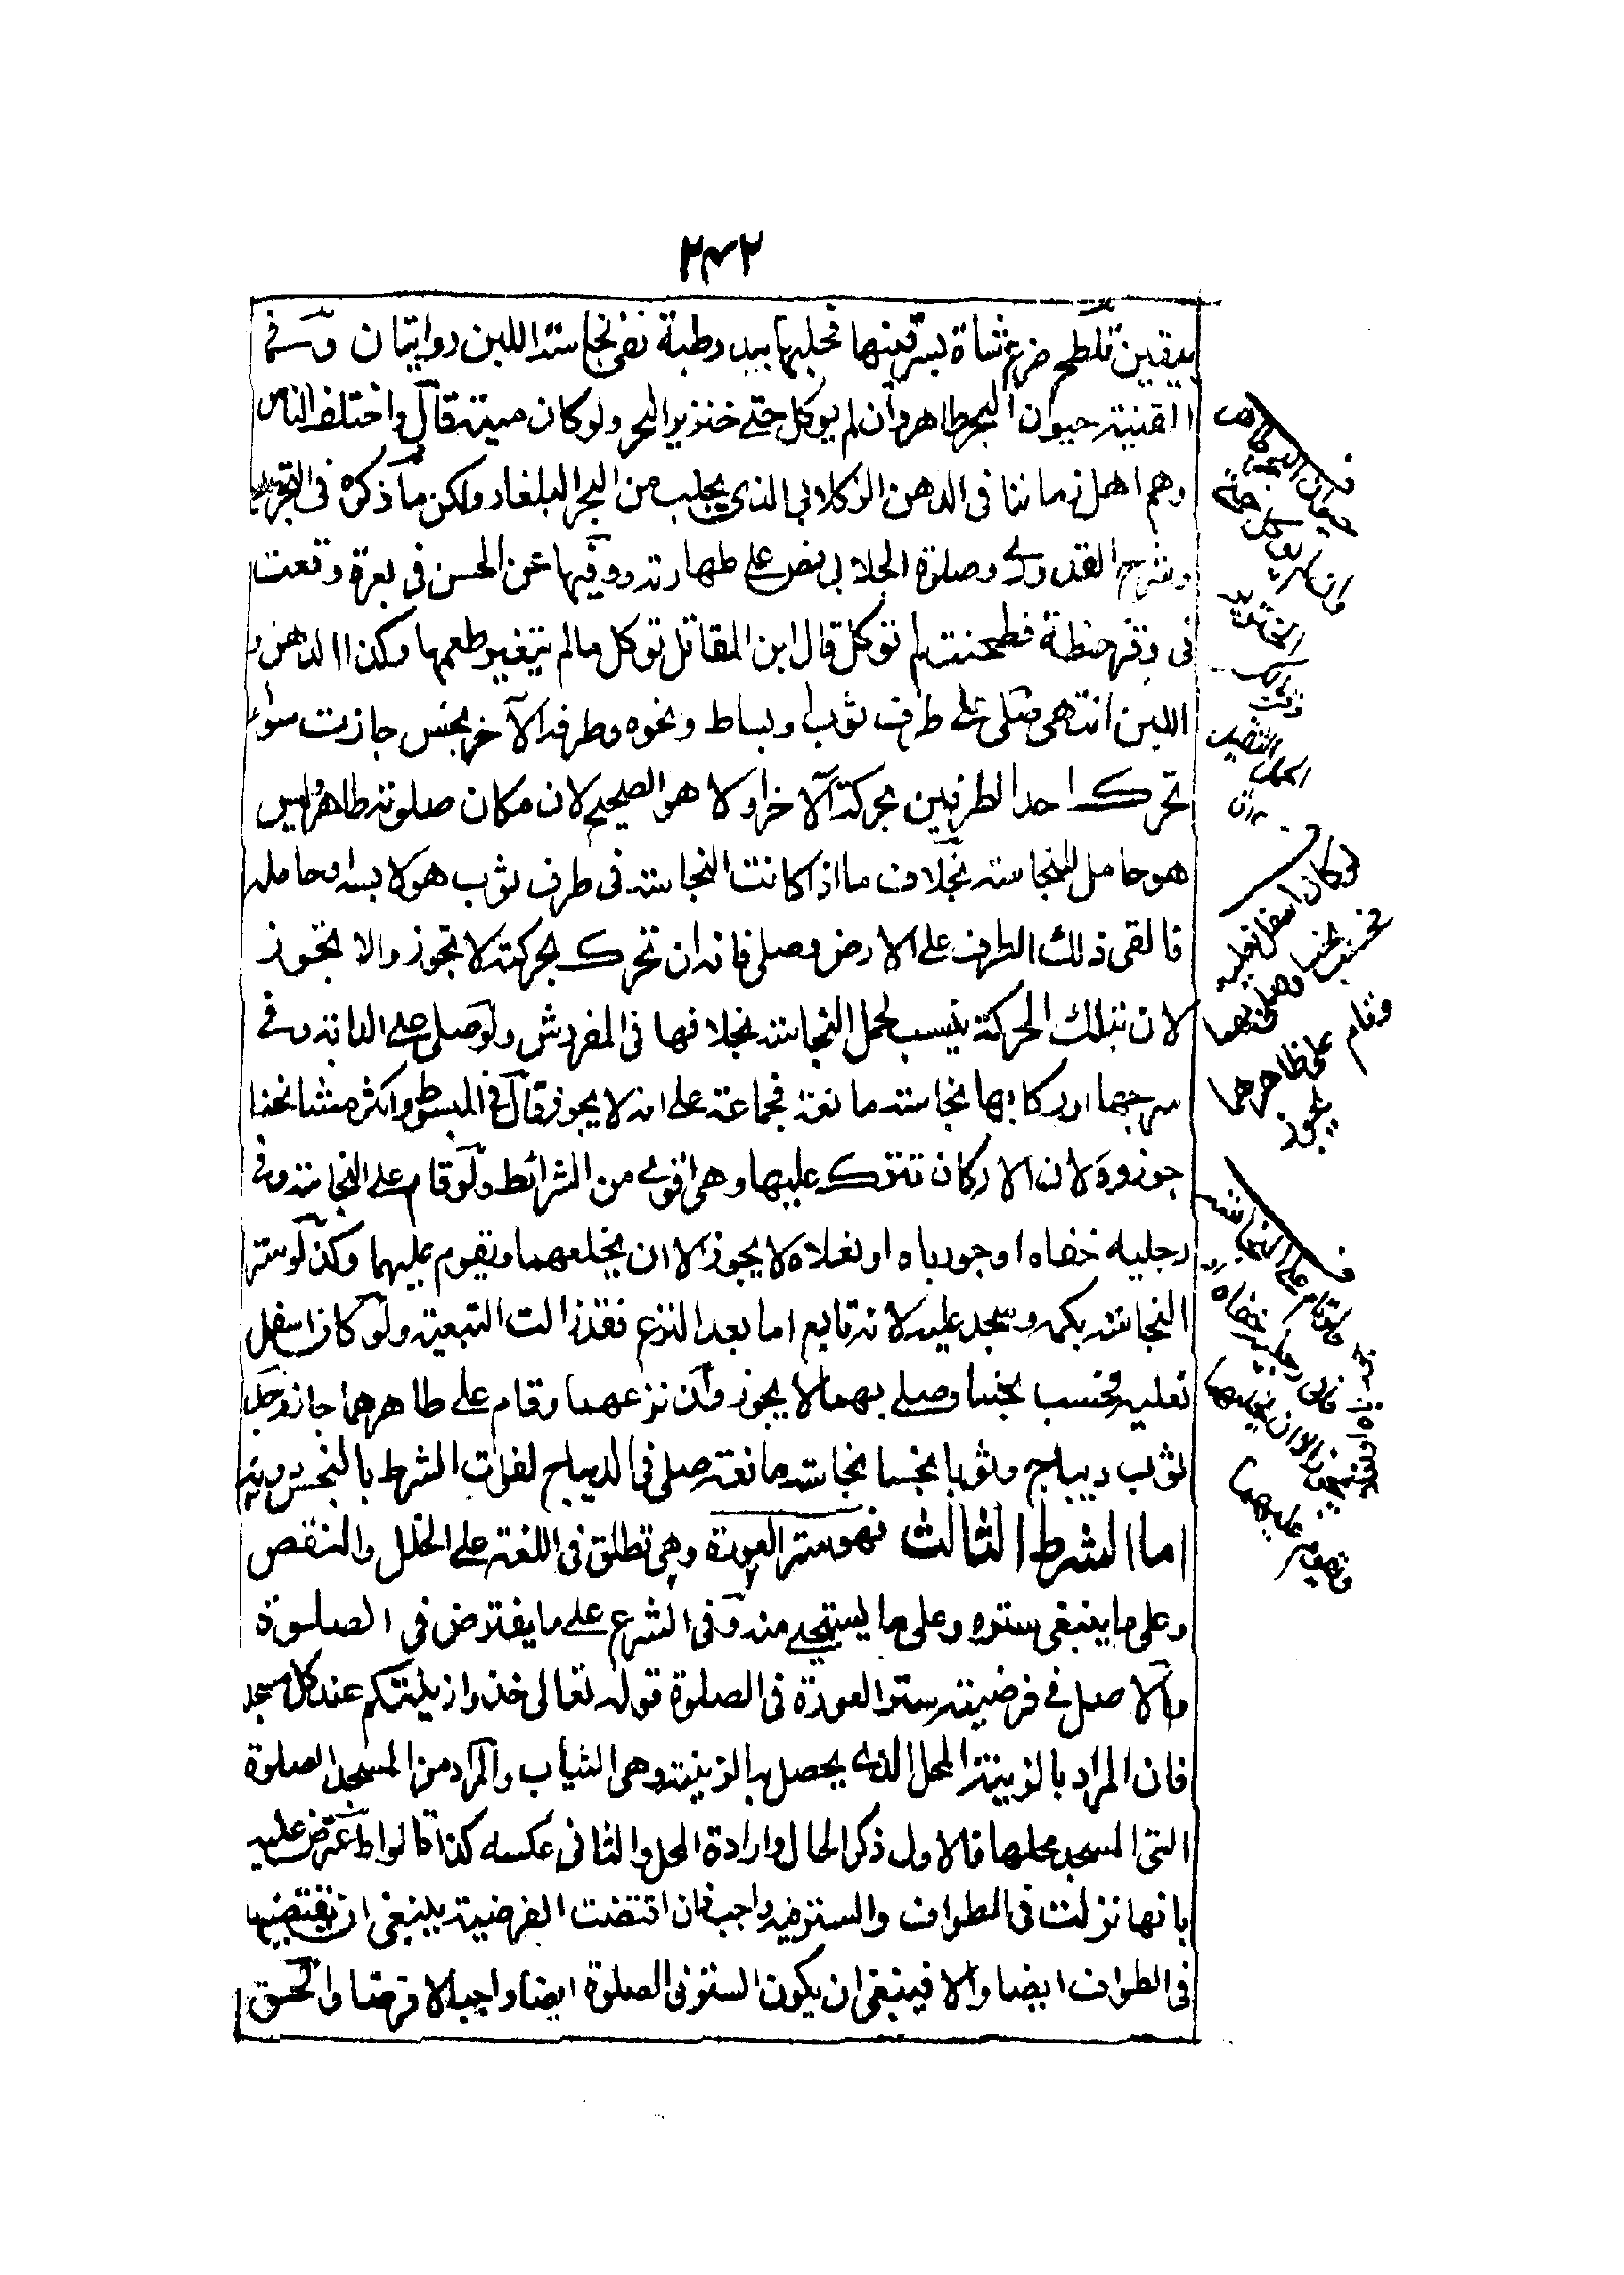 ٢٣٢
بيقين تلطخ ضرع شاة بسرقينها فحلبها بيد رطبة نفى نجاسة اللبن روايتان وفى
القنية حيوان البحر طاهر وان لم يوكل حتى خنزير البحر ولو كان ميتة قال واختلف الناس
وهم اهل زماننا فى الدهن الوكلابى الذى يجلب من البحر البلغار ولكن ما ذكره فى التجريد
وشرح القدورى وصلوة الجلابى نص على طهارته وفيها عن الحسن فى بعرة وقعت
فى وقر حنطة فطحنت لم توكل قال ابن المقاتل توكل ما لم يتغير طعمها وكذا الدهن و
اللبن انتهى صلى على طرف ثوب او بساط ونحوه وطرفه الآخر نجس جازت سواء
تحرك احد الطرفين بحركة الآخر اولا هو الصحيح لان مكان صلوته طاهر وليس
هو حامل للنجاسة بخلاف ما اذا كانت النجاسة فى طرف ثوب هو لابسه او حامله
فالقى ذلك الطرف على الارض وصلى فانه ان تحرك بحركته لا تجوز والا تجوز
لان بتلك الحركة ينسب لحمل النجاسة بخلافها فى المفروش ولو صلى على الدابة وفى
سرجها او ركابها نجاسة مانعة فجماعة على انه لا يجوز قال فى المبسوط واكثر مشائخنا
جوزوه لان الاركان تترك عليها وهى اقوى من الشرائط ولو قام على النجاسة وفى
رجليه خفاه او جورباه او نعلاه لا يجوز الا ان يخلعهما ويقوم عليهما وكذا لو ستر
النجاسة بكمه وسجد عليه لانه تابع اما بعد النزع فقد زالت التبعية ولو كان اسفل
نعليه فحسب نجسا وصلى بهما لا يجوز وان نزعهما وقام على ظاهرهما جاز وجد
ثوب ديباج وثوبا نجسا نجاسة مانعة صلى فى الديباج لفوات الشرط بالنجس دونه
اما الشرط الثالث فهو ستر العورة وهى تطلق فى اللغة على الخلل والنقص
وعلى ما ينبغى ستره وعلى ما يستحى منه وفى الشرع على ما يفترض فى الصلوة
والاصل فى فرضية ستر العورة فى الصلوة قوله تعالى خذوا زينتكم عند كل مسجد
فان المراد بالزينة المحل الذى يحصل به الزينة وهى الثياب والمراد من المسجد الصلوة
التى المسجد محلها فالاول ذكر الحال وارادة المحل والثانى عكسه كذا قالوا واعترض عليه
بانها نزلت فى الطواف والستر فيه واجب فان اقتضت الفرضية ينبغى ان تقتضيها
فى الطواف ايضا والا فينبغى ان يكون الستر فى الصلوة ايضا واجبا لا فرضا والحق
حيوان البحر طاهر
وان لم يوكل حتى
الخنزير
لو كان اسفل نعليه
نجسا وصلى بهما
وقام على ظاهرهما
يجوز
لو قام على النجاسة
وفى رجليه خفاه
ويقوم عليهما